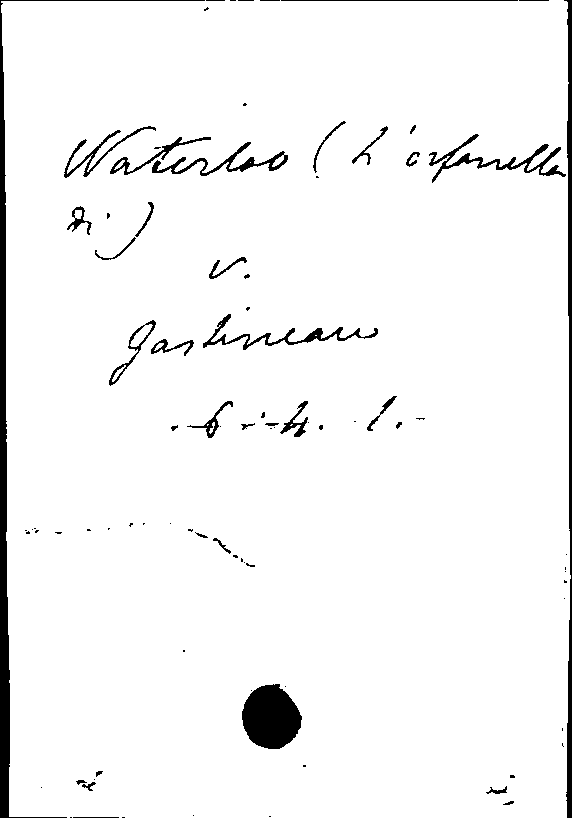 Waterloo (L'orfanella
di)
v.
Gastineau
6-4. 1.